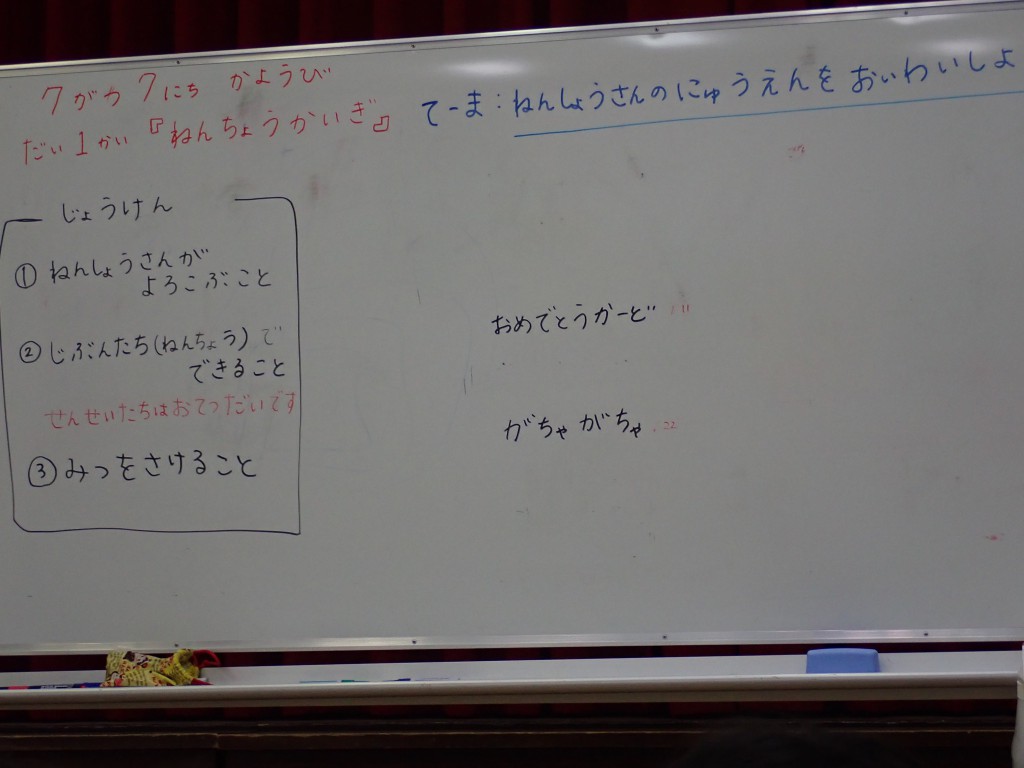 7がつ 7にち かようび
だい1かい『ねんちょうかいぎ』
てーま：ねんしょうさんのにゅうえんをおいわいしよ
じょうけん
① ねんしょうさんが
よろこぶこと
② じぶんたち(ねんちょう)で
できること
せんせいたちはおてつだいです
③ みつをさけること
おめでとうかーど 11
がちゃがちゃ 22